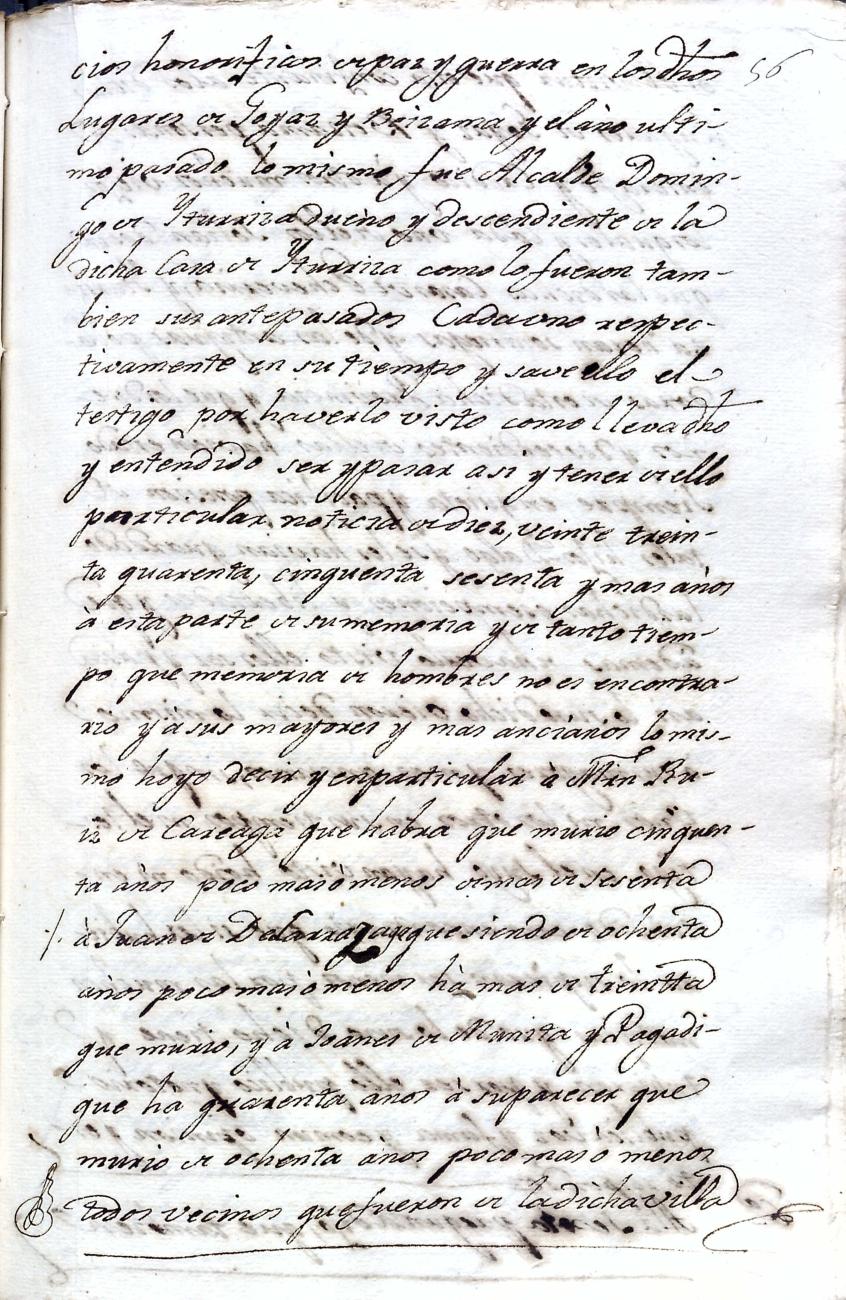 cios honorificos de paz y guerra en los dhos 56
Lugares de Goyaz y Beizama, y el año ulti-
mo pasado lo mismo fue Alcalde Domin-
go de Yturriza dueño y descendiente de la
dicha Casa de Yturriza como lo fueron tam-
bien sus antepasados Cada uno respec-
tivamente en su tiempo y save ello el
testigo por haverlo visto como lleva dho
y entendido ser y pasar asi y tener de ello
particular noticia de diez, veinte trein-
ta quarenta, cinquenta sesenta y mas años
à esta parte de su memoria y de tanto tiem-
po que memoria de hombres no es encontra-
rio y à sus mayores y mas ancianos lo mis-
mo hoyo decir y en particular à Mrn Ru-
iz de Careaga que habra que murio cinquen-
ta años poco mas ò menos de mas de sesenta
/. à Juan de Delarraza que siendo de ochenta
años poco mas ò menos hà mas de treintta
que murio, y à Joanes de Munita y Pagadi-
que hà quarenta años à su parecer que
murio de ochenta años poco mas ò menos
todos vecinos que fueron de la dicha villa